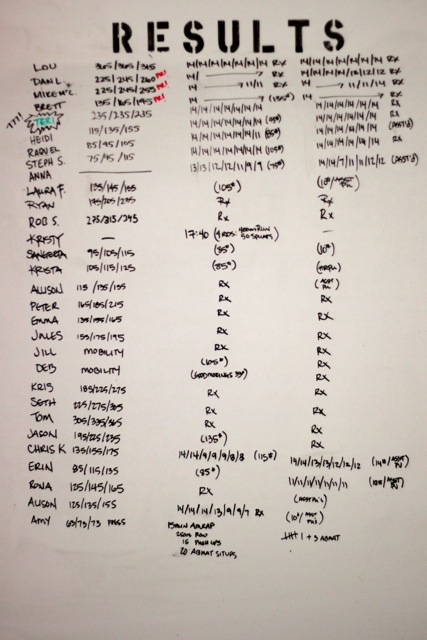 RESULTS
LOU 265/305/345 14/14/14/14/14/14/14 RX 14/14/14/14/14/14/14 RX
DAN L. 225/245/260 PR! 14/ RX 14/14/14/14/12/12/12 RX
MIKE MC. 225/245/255 PR! 14 11/11 RX 14 11/11/14 RX
BRETT 135/165/195 PR! 14 (135#) 14 RX
??!! TERI 235/235/235 14/14/14/14/14/14/14 14/14/14/14/14/14/14 RX
HEIDI 115/135/155 14/14/14/14/14/14/14 14/14/14/14/14/14/14 (ASST'D)
RAQUEL 85/95/105 14/14/14/14/14/14/14 14/14/14/14/14/14/14 RX
STEPH S. 75/95/115 13/13/12/12/11/9/9 (75#) 14/14/7/11/11/12/12 (ASST'D)
ANNA
LAURA F. 135/145/155 (105#)
RYAN RX RX
ROB S. 275/315/345 RX RX
KRISTY — 17:40 50 SQUATS —
SANGEETA 95/105/115 (85#) (10#)
KRISTA 105/115/125 (85#)
ALLISON 115/135/155 RX (ASST PU)
PETER 165/185/215 RX RX
EMMA 135/155/165 RX RX
JULES 155/175/195 RX RX
JILL MOBILITY RX RX
DEB MOBILITY (105#) RX
(GOODMORNINGS 35#) RX
KRIS 185/225/275 RX RX
SETH 225/275/305 RX RX
TOM 305/335/365 RX RX
JASON 195/225/235 (135#) RX
CHRIS K 135/155/175 14/14/9/9/9/8/8 (115#) 14/14/13/13/12/12/12 (14#/ASST PU)
ERIN 85/115/135 (85#) 11/11/11/11/11/11/11
RONA 125/145/165 RX (ASST PU'S)
ALISON 125/135/155 14/14/14/13/9/9/7 RX (10#/ASST PU'S)
AMY 63/73/73 15MIN AMRAP 1 + 3 ABMAT
250M ROW
15 PUSH UPS
20 ABMAT SITUPS